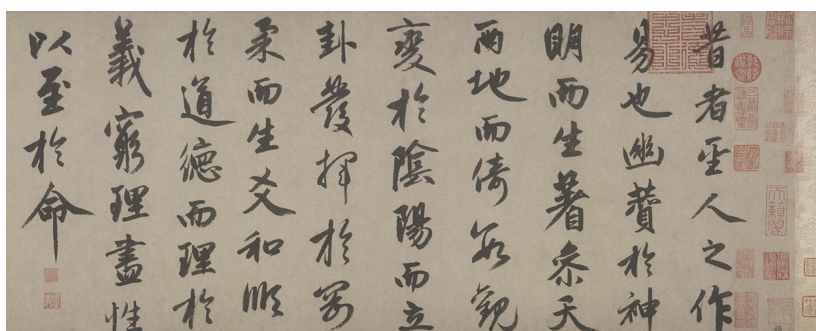 昔者聖人之作
易也幽贊於神
明而生蓍叅天
兩地而倚數觀
變於陰陽而立
卦發揮於罡
柔而生爻和順
於道德而理於
義窮理盡性
以至於命